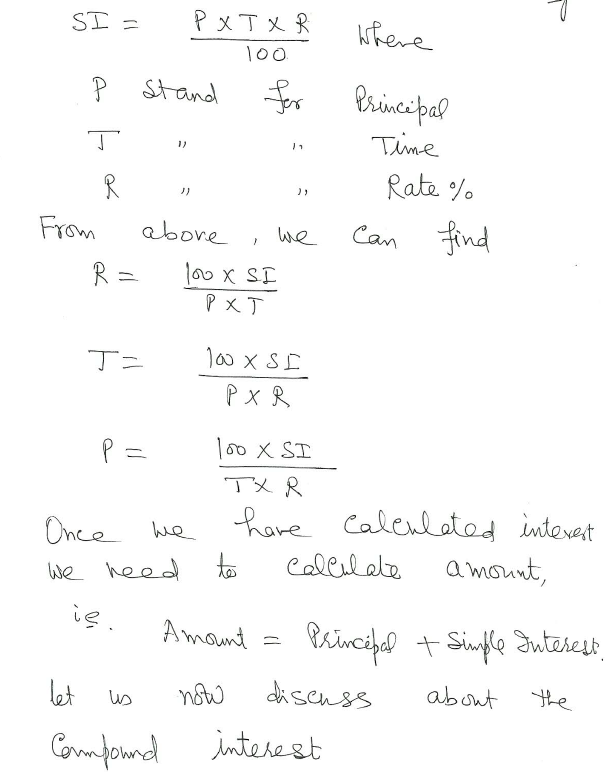 SI = P X T X R / 100 Where
P Stand for Principal
T " " Time
R " " Rate %
From above, we can find
R = 100 X SI / P X T
T = 100 X SI / P X R
P = 100 X SI / T X R
Once we have calculated interest
we need to calculate amount,
ie. Amount = Principal + Simple Interest.
let us now discuss about the
Compound interest